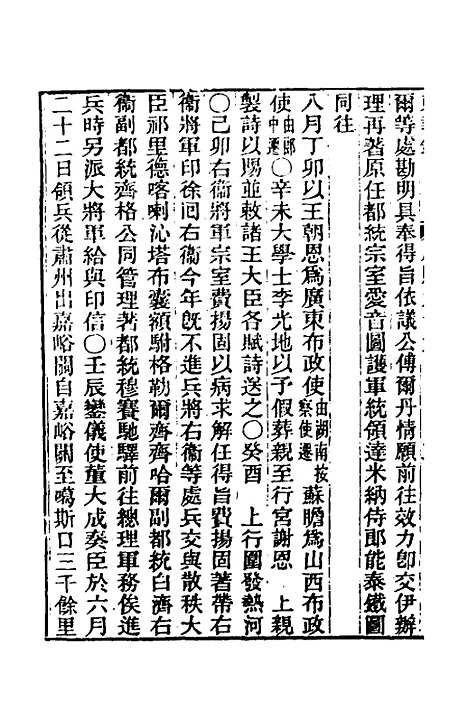 爾等處勘明具奉得旨依議公傅爾丹情願前往效力卽交伊辦
理再著原任都統宗室愛音圖護軍統領達米納侍郎能泰鐵圖
同往
八月丁卯以王朝恩爲廣東布政使由湖南按察使遷蘇瞻爲山西布政
使由郎中遷○辛未大學士李光地以予假葬親至行宮謝恩　上親
製詩以賜並敕諸王大臣各賦詩送之○癸酉　上行圍發熱河
○己卯右衞將軍宗室費揚固以病求解任得旨費揚固著帶右
衞將軍印徐囘右衞今年旣不進兵將右衞等處兵交與散秩大
臣祁里德喀喇沁塔布囊額駙格勒爾齊齊哈爾副都統白濟右
衞副都統齊格公同管理著都統穆賽馳驛前往總理軍務俟進
兵時另派大將軍給與印信○壬辰鑾儀使董大成奏臣於六月
二十二日領兵從肅州出嘉峪關自嘉峪關至噶斯口三千餘里